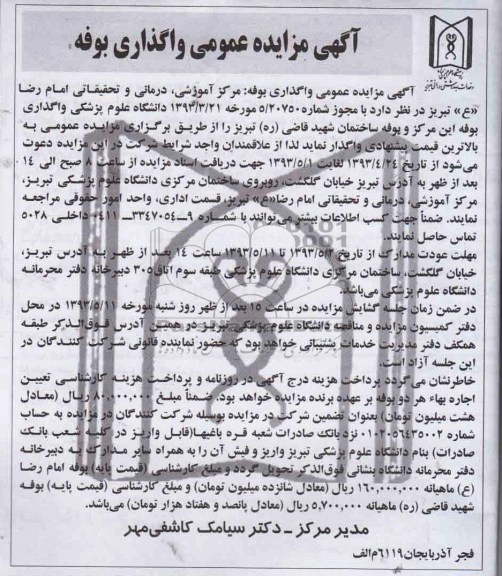 آگهی مزایده عمومی واگذاری بوفه
آگهی مزایده عمومی واگذاری بوفه: مرکز آموزشی، درمانی و تحقیقاتی امام رضا
«ع» تبریز در نظر دارد با مجوز شماره ۵/۲۰۷۵۰ مورخه ۱۳۹۳/۳/۲۱ دانشگاه علوم پزشکی واگذاری
بوفه این مرکز و بوفه ساختمان شهید قاضی (ره) تبریز را از طریق برگزاری مزایده عمومی به
بالاترین قیمت پیشنهادی واگذار نماید لذا از علاقمندان واجد شرایط شرکت در این مزایده دعوت
می‌شود از تاریخ ۱۳۹۳/۴/۲۴ لغایت ۱۳۹۳/۵/۱ جهت دریافت اسناد مزایده از ساعت ۸ صبح الی ۱۴
بعد از ظهر به آدرس تبریز خیابان گلگشت، روبروی ساختمان مرکزی دانشگاه علوم پزشکی تبریز،
مرکز آموزشی، درمانی و تحقیقاتی امام رضا«ع» تبریز، قسمت اداری، واحد امور حقوقی مراجعه
نمایند. ضمناً جهت کسب اطلاعات بیشتر می‌توانند با شماره ۹ــ۳۳۴۷۰۵۴ــ۰۴۱۱ داخلی ۵۰۲۸
تماس حاصل نمایند.
مهلت عودت مدارک از تاریخ ۱۳۹۳/۵/۲ تا ۱۳۹۳/۵/۱۱ ساعت ۱۴ بعد از ظهر به آدرس تبریز،
خیابان گلگشت، ساختمان مرکزی دانشگاه علوم پزشکی طبقه سوم اتاق ۳۰۵ دبیرخانه دفتر محرمانه
دانشگاه علوم پزشکی می‌باشد.
در ضمن زمان جلسه گشایش مزایده در ساعت ۱۵ بعد از ظهر روز شنبه مورخه ۱۳۹۳/۵/۱۱ در محل
دفتر کمیسیون مزایده و مناقصه دانشگاه علوم پزشکی تبریز در همین آدرس فوق‌الذکر طبقه
همکف دفتر مدیریت خدمات پشتیبانی خواهد بود که حضور نماینده قانونی شرکت کنندگان در
این جلسه آزاد است.
خاطرنشان می‌گردد پرداخت هزینه درج آگهی در روزنامه و پرداخت هزینه کارشناسی تعیین
اجاره بهاء هر دو بوفه بر عهده برنده مزایده خواهد بود. ضمناً مبلغ ۸۰,۰۰۰,۰۰۰ ریال (معادل
هشت میلیون تومان) بعنوان تضمین شرکت در مزایده بوسیله شرکت کنندگان در مزایده به حساب
شماره ۰۱۰۲۰۵۶۴۳۵۰۰۲ نزد بانک صادرات شعبه قره باغیها(قابل واریز در کلیه شعب بانک
صادرات) بنام دانشگاه علوم پزشکی تبریز واریز و فیش آن را به همراه سایر مدارک به دبیرخانه
دفتر محرمانه دانشگاه بنشانی فوق‌الذکر تحویل گردد و مبلغ کارشناسی (قیمت پایه) بوفه امام رضا
(ع) ماهیانه ۱۶۰,۰۰۰,۰۰۰ ریال (معادل شانزده میلیون تومان) و مبلغ کارشناسی (قیمت پایه) بوفه
شهید قاضی (ره) ماهیانه ۵,۷۰۰,۰۰۰ ریال (معادل پانصد و هفتاد هزار تومان) می‌باشد.
مدیر مرکز ــ دکتر سیامک کاشفی‌مهر
فجر آذربایجان ۶۱۱۹ م الف